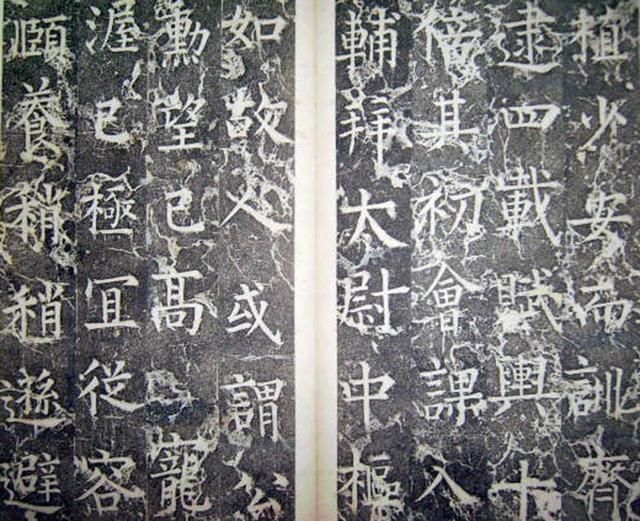 植少安而訓齊
逮四載賦輿十
倍其初會課入
輔拜太尉中樞
如故人或謂公
勳望已高寵
渥已極冝從容
頤養稍稍遜避